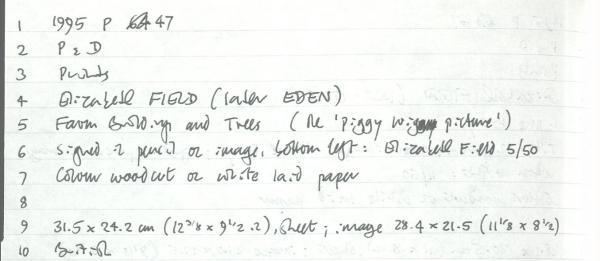 1 1995 P 47
2 P & D
3 Prints
4 Elizabeth FIELD (later EDEN)
5 Farm Buildings and Trees (the 'Piggy wig picture')
6 Signed in pencil on image, bottom left: Elizabeth Field 5/50
7 Colour woodcut on white laid paper
8
9 31.5 x 24.2 cm (12 3/8 x 9 1/2 .2), sheet; image 28.4 x 21.5 (11 1/8 x 8 1/2)
10 British